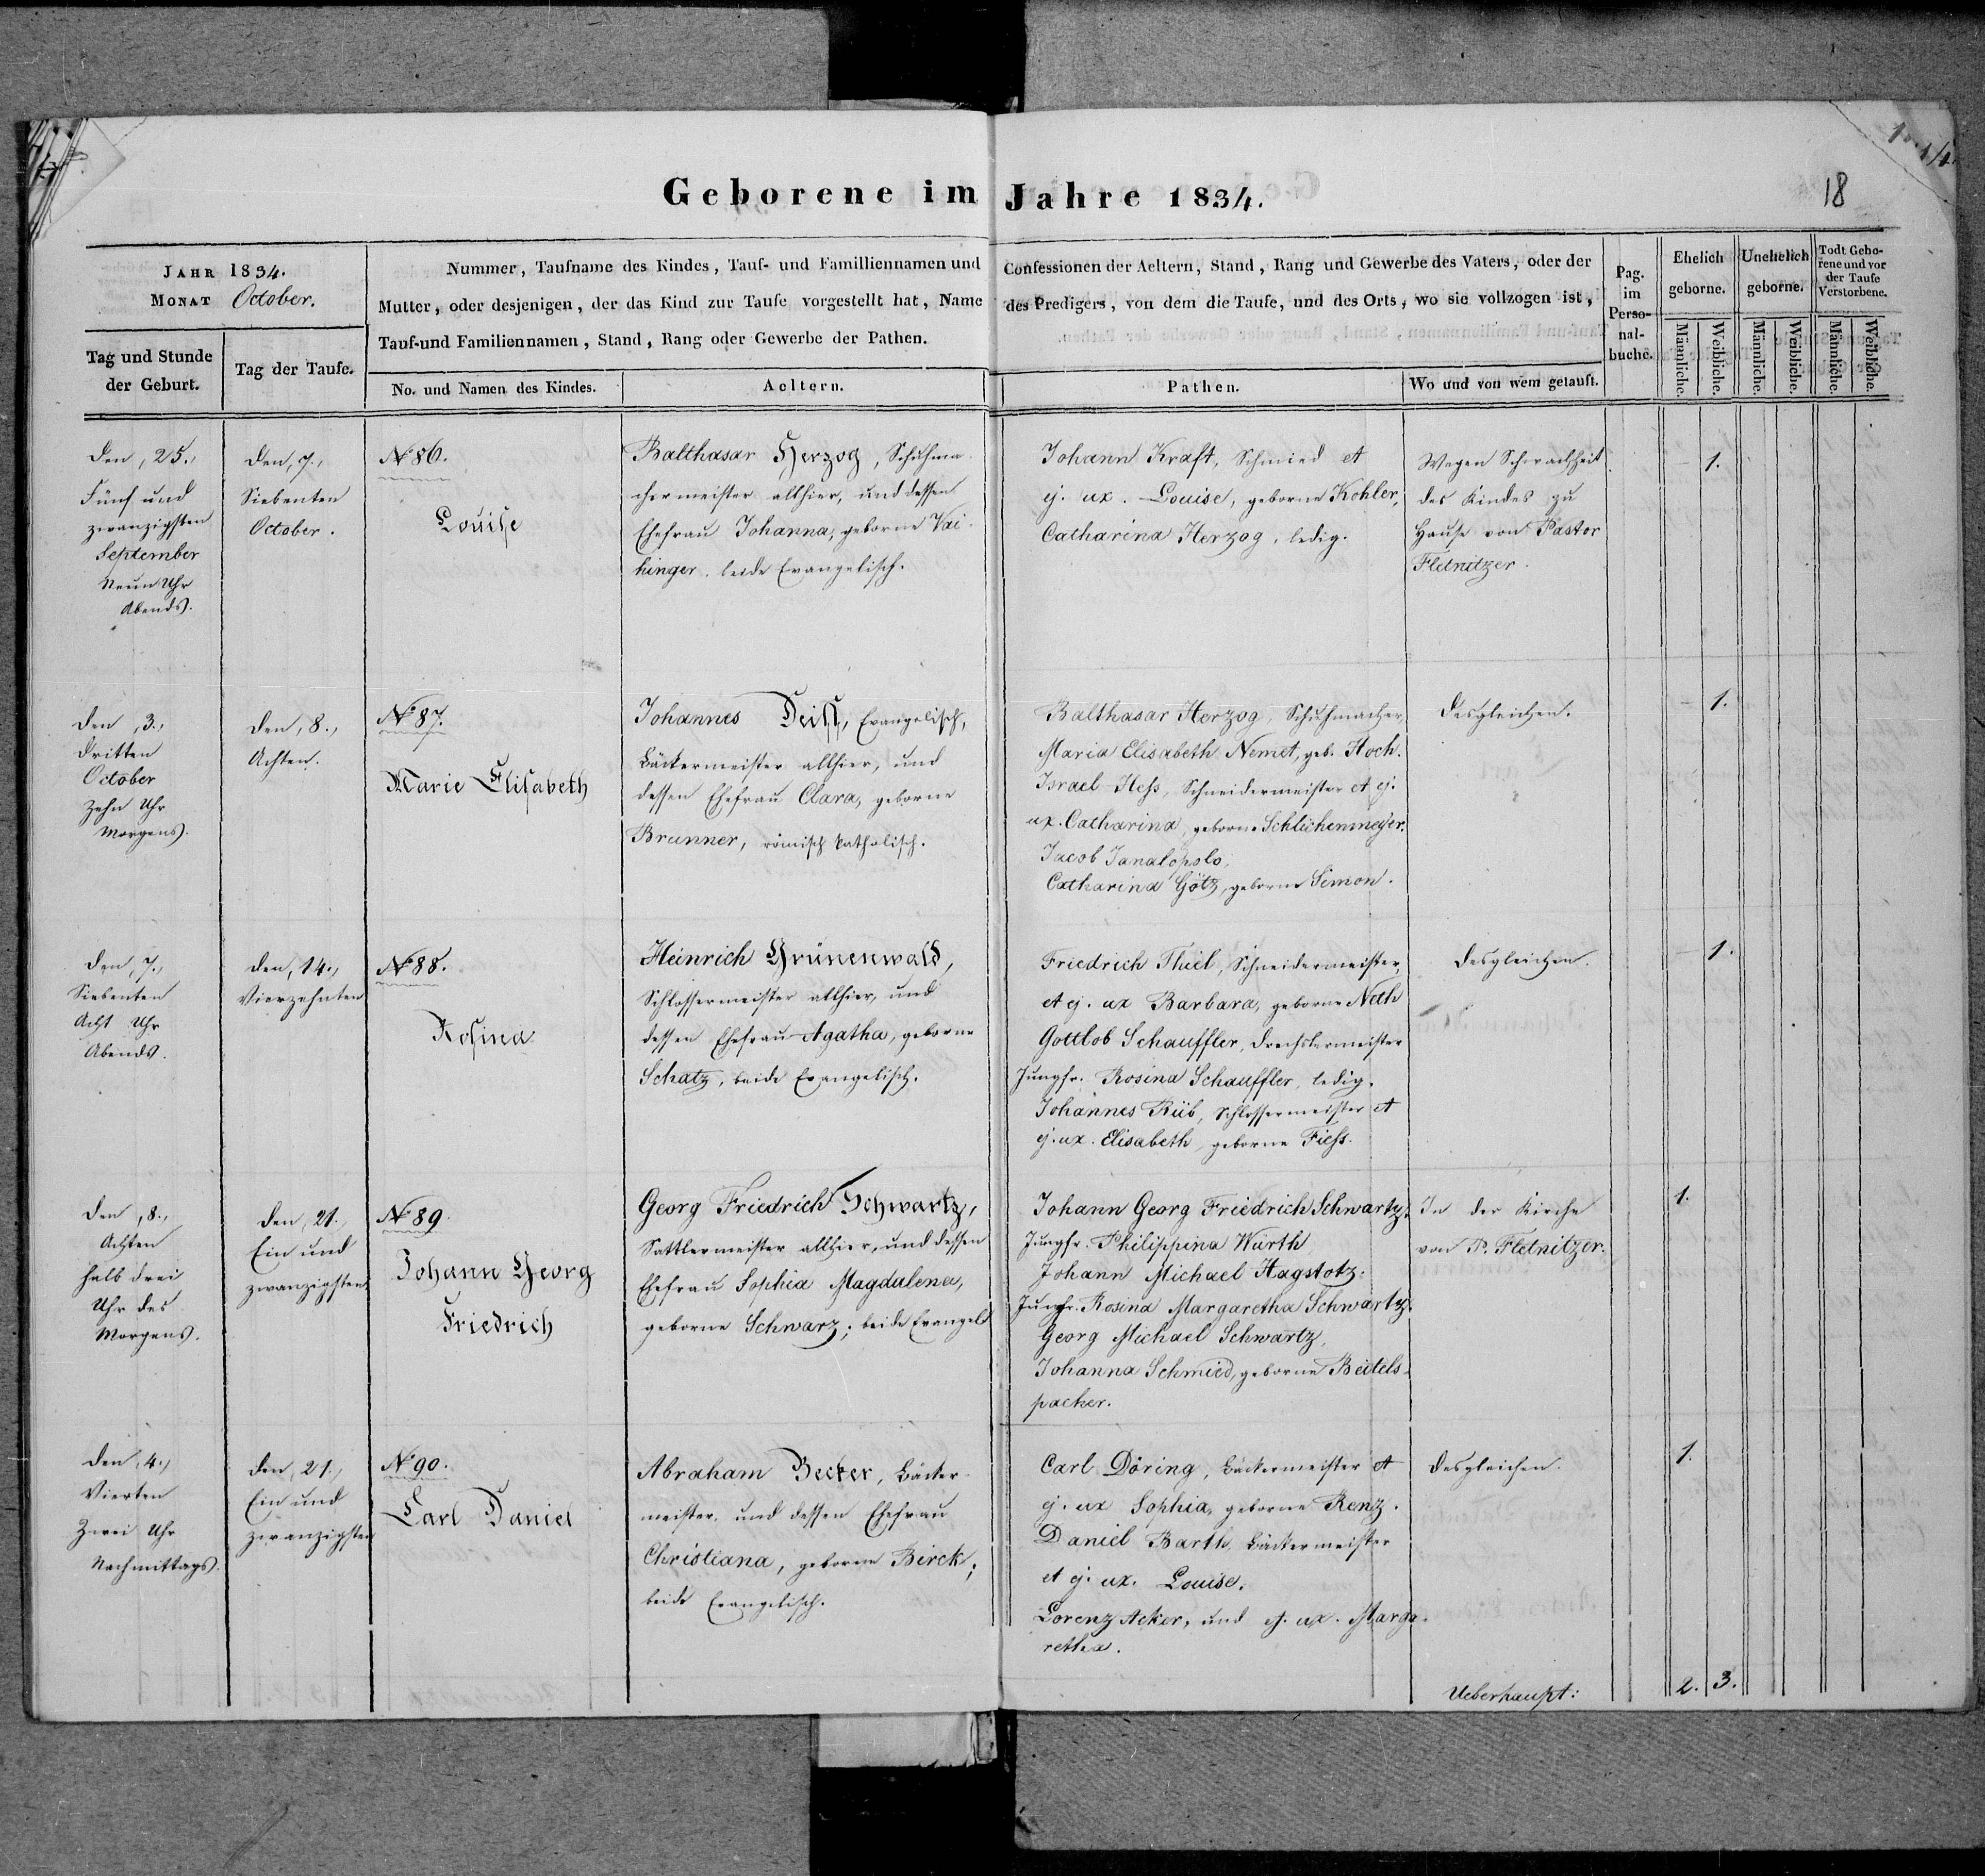 Geborene im Jahre 1834.
18
JAHR 1834.
MONAT October.
Nummer, Taufname des Kindes, Tauf- und Familliennamen und Confessionen der Aeltern, Stand, Rang und Gewerbe des Vaters, oder der
Mutter, oder desjenigen, der das Kind zur Taufe vorgestellt hat, Name des Predigers, von dem die Taufe, und des Orts, wo sie vollzogen ist,
Tauf-und Familiennamen, Stand, Rang oder Gewerbe der Pathen.
Pag.
im
Perso-
nal-
buche.
Ehelich
geborne.
Unehelich
geborne.
Todt Gebo-
rene und vor
der Taufe
Verstorbene.
Tag und Stunde
der Geburt.
Tag der Taufe.
No. und Namen des Kindes.
Aeltern.
Pathen.
Wo und von wem getauft.
Männliche.
Weibliche.
Männliche.
Weibliche.
Männliche.
Weibliche.
Den, 25.,
Fünf und
zwanzigsten
September
Neun Uhr
Abends.
Den, 7.,
Siebenten
October.
№ 86.
Louise
Balthasar Herzog, Schuhma-
chermeister allhier, und dessen
Ehefrau Johanna, geborne Vai-
hinger, beide Evangelisch.
Johann Kraft, Schmied et
ej. ux. Louise, geborne Kohler,
Catharina Herzog, ledig.
Wegen Schwachheit
des Kindes zu
Hause von Pastor
Fletnitzer.
1.
Den, 3.,
Dritten
October
Zehn Uhr
Morgens.
Den, 8.,
Achten.
№ 87.
Marie Elisabeth
Johannes Deiss, Evangelisch,
Bäckermeister allhier, und
dessen Ehefrau Clara, geborne
Brunner, römisch katholisch.
Balthasar Herzog, Schuhmacher,
Maria Elisabeth Nemet, geb. Hoch.
Israel Hess, Schneidermeister et ej.
ux. Catharina, geborne Schlichenmeyer.
Jacob Janalopolo,
Catharina Götz, geborne Simon.
Desgleichen.
1.
Den, 7.,
Siebenten
Acht Uhr
Abends.
Den, 14.,
Vierzehnten
№ 88.
Rosina
Heinrich Grünenwald,
Schlossermeister allhier, und
dessen Ehefrau Agatha, geborne
Schatz, beide Evangelisch.
Friedrich Thiel, Schneidermeister,
et ej. ux Barbara, geborne Neth
Gottlob Schauffler, Drechslermeister
Jungfr. Rosina Schauffler, ledig.
Johannes Rüb, Schlossermeister et
ej. ux. Elisabeth, geborne Fiess.
Desgleichen.
1.
Den, 8.,
Achten
halb drei
Uhr des
Morgens.
Den, 21.,
Ein und
zwanzigsten
№ 89.
Johann Georg
Friedrich
Georg Friedrich Schwartz,
Sattlermeister allhier, und dessen
Ehefrau Sophia Magdalena,
geborne Schwarz; beide Evangel
Johann Georg Friedrich Schwartz.
Jungfr. Philippina Würth
Johann Michael Hagstotz.
Jungfr. Rosina Margaretha Schwartz.
Georg Michael Schwartz,
Johanna Schmied, geborne Beitels-
pacher.
In der Kirche
von P. Fletnitzer.
1.
Den, 4.,
Vierten
Zwei Uhr
Nachmittags.
Den, 21.,
Ein und
zwanzigsten
№ 90.
Carl Daniel
Abraham Becker, Bäcker-
meister, und dessen Ehefrau
Christiana, geborne Birck;
beide Evangelisch.
Carl Döring, Bäckermeister et
ej. ux Sophia, geborne Renz.
Daniel Barth, Bäckermeister
et ej. ux. Louise.
Lorenz Acker, und ej. ux. Marga-
retha.
Desgleichen.
1.
Ueberhaupt: 2. 3.